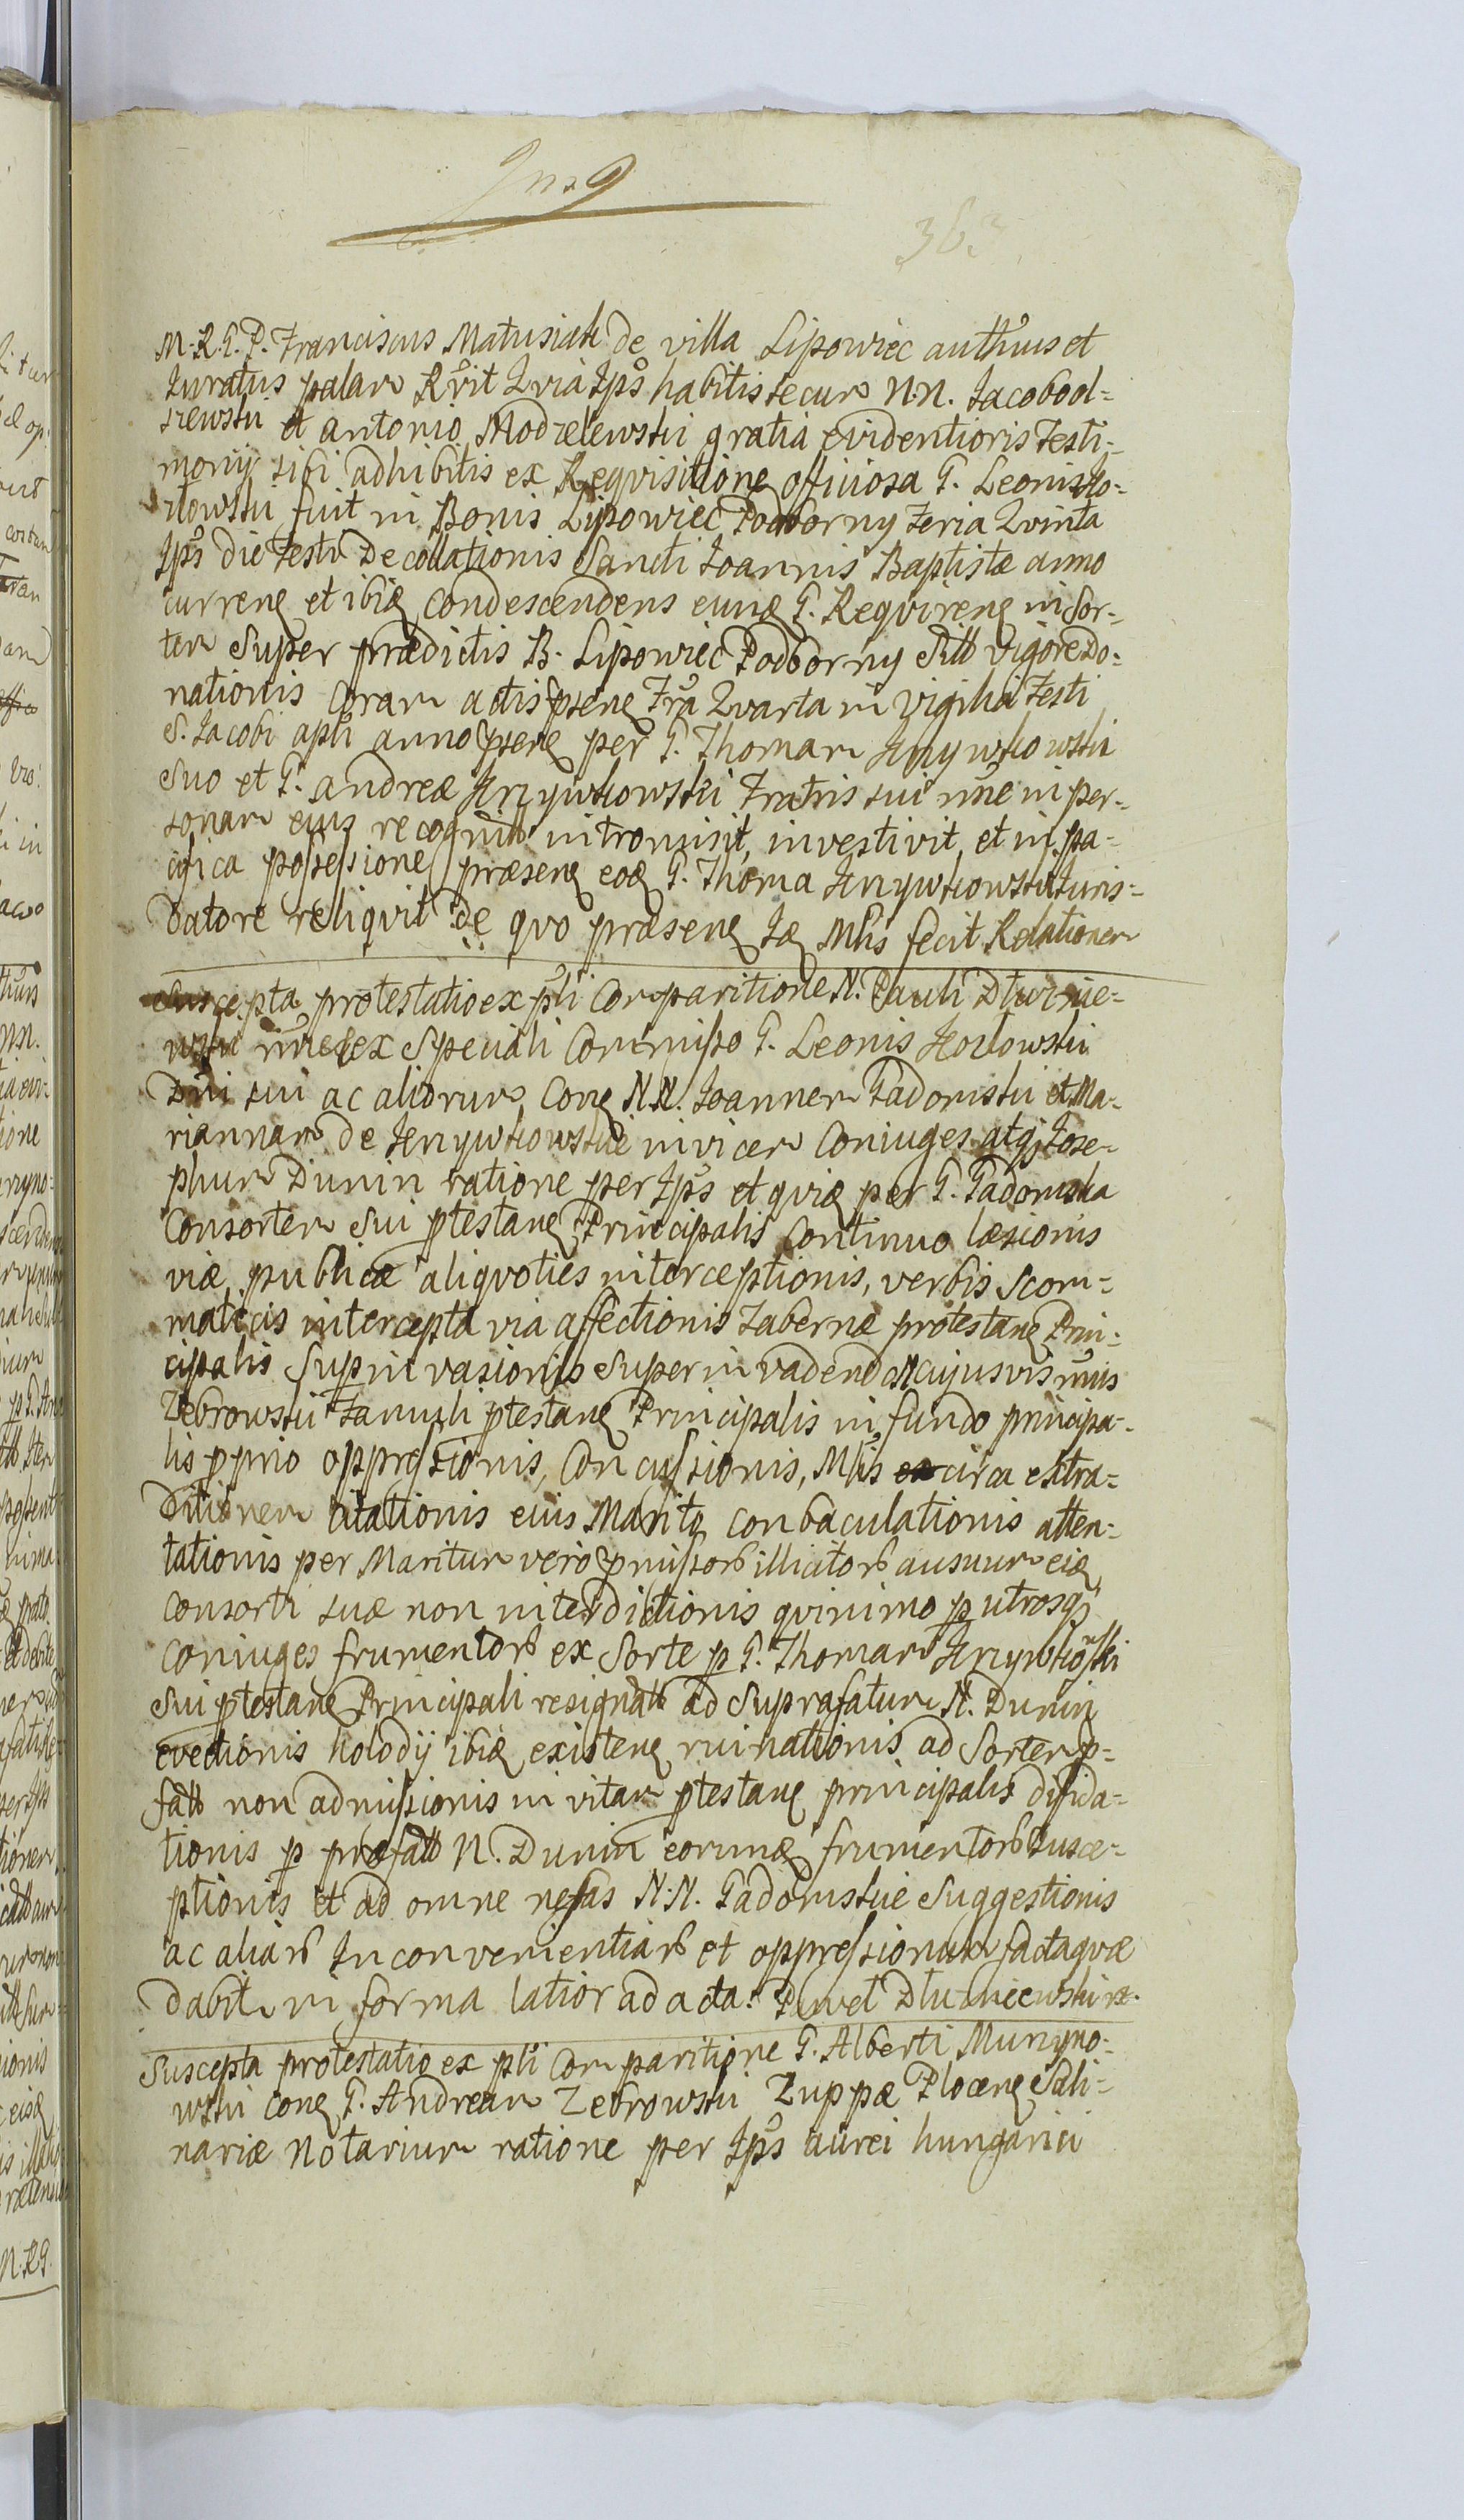 363
M. R. G. P. Franciscus Matusiak de villa Lipowiec authus et
Juratus palam Rvit Qvia Ips habitis secum N.N. Jacobo ol=
szewski et antonio Modzelewski gratia evidentioris Testi=
monij sibi adhibitis ex Reqvisitione officiosa G. Leonis Ko=
złowski fuit in Bonis Lipowiec Podborny Feria Qvinta
Ips die Festi Decollationis Sancti Joannis Baptistæ anno
curren et ibid Condescendens eund G. Reqviren in Sor=
tem Super prædictis B. Lipowiec Podborny Sitt vigore Do=
nationis Coram actis psen Fra Qvarta in Vigilia Festi
S. Jacobi apli anno psen per G. Thomam Krzywkowski
Suo et G. andreæ Krzywkowski Fratris sui nne in per=
sonam eius recognitt intromisit, investivit, et in pa=
cifica possessione præsen eod G. Thoma Krzywkowski Juris=
datore reliqvit de qvo præsen Id Mlis fecit Relationem
Suscepta protestatio ex pli Comparitione N. Pauli Dłuznie=
wski nne ex Speciali Commisso G. Leonis Kozlowski
Dni sui ac aliorum Con N.N. Joannem Gadomski et Ma=
riannam de Krzywkowskie invicem Coniuges atq Jose=
phum Dunin ratione per Ips et qvid per G. Gadomska
Consortem Sui ptestan Principalis Continuo læsionis
viæ publicæ aliqvoties interceptionis, verbis Scom=
maticis intercepta via affectionis Tabernæ protestan Prin=
cipalis Superinvasionis Super invadend cujusvis
Zebrowski Famuli ptestan Principalis in fundo principa=
lis pprio oppressionis, Concussionis, Mlis circa extra=
ditionem citationis eius Marito conbaculationis atten=
tationis per Maritum vero pmissor illicitor ausuum eid
Consorti suæ non interdictionis qvinimo p utrosq
Coniuges frumentor ex Sorte p G. Thomam Krzywkoski
Sui ptestan Principali resignatt ad Suprafatum N. Dunin
evectionis kolodij ibid existen ruinationis ad Sortem p=
fatt non admissionis in vitam ptestan principalis difida=
tionis p præfatt N. Dunin eorund frumentor Susce=
ptionis et ad omne nefas N.N. Gadomskie Suggestionis
ac aliar Inconvenientiar et oppressionum facta qvæ
dabit in forma latior ad acta. Paweł Dłuzniewski
Suscepta protestatio ex pli Comparitione G. Alberti Murzyno=
wski con G. Andream Zebrowski Zuppæ Plocen Sali=
nariæ Notarium ratione per Ips aurei hungarici